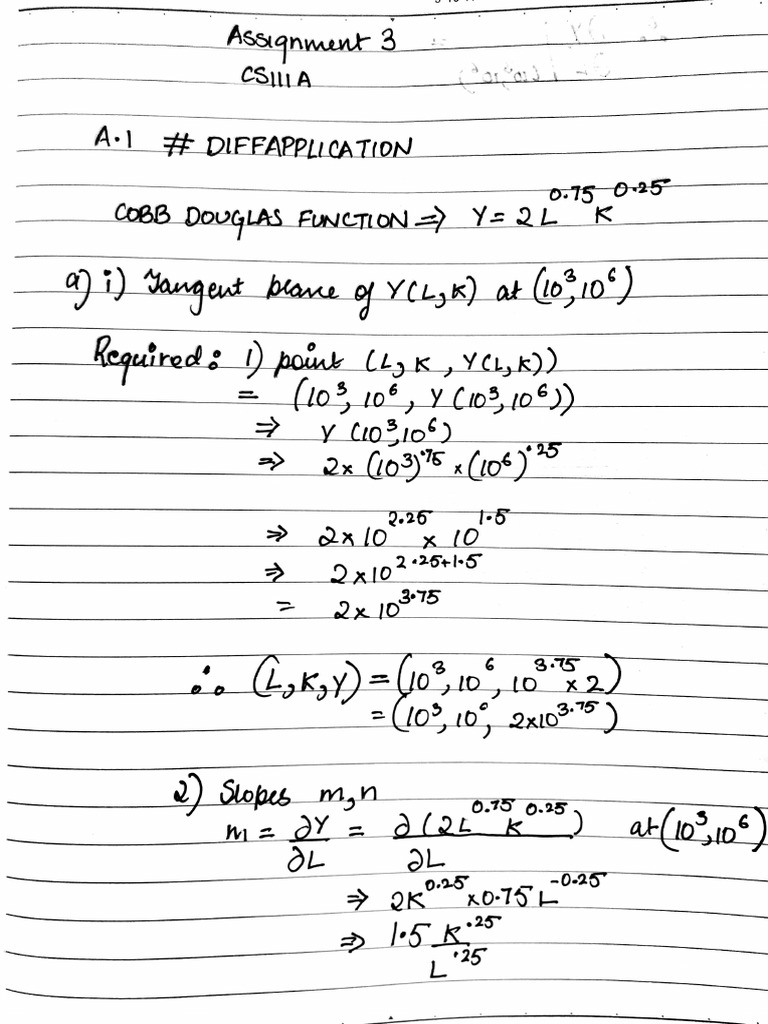 Assignment 3
CS111A
A.1 # DIFFAPPLICATION
COBB DOUGLAS FUNCTION ⇒ Y = 2L^0.75 K^0.25
a) i) Tangent plane of Y(L,K) at (10^3, 10^6)
Required: 1) point (L, K, Y(L,K))
= (10^3, 10^6, Y(10^3, 10^6))
⇒ Y(10^3, 10^6)
⇒ 2 × (10^3)^.75 × (10^6)^.25
⇒ 2 × 10^2.25 × 10^1.5
⇒ 2 × 10^2.25+1.5
= 2 × 10^3.75
∴ (L, K, Y) = (10^3, 10^6, 10^3.75 × 2)
= (10^3, 10^6, 2×10^3.75)
2) Slopes m, n
m = ∂Y/∂L = ∂(2L^0.75 K^0.25)/∂L at (10^3, 10^6)
⇒ 2K^0.25 × 0.75 L^-0.25
⇒ 1.5 K^.25/L^.25